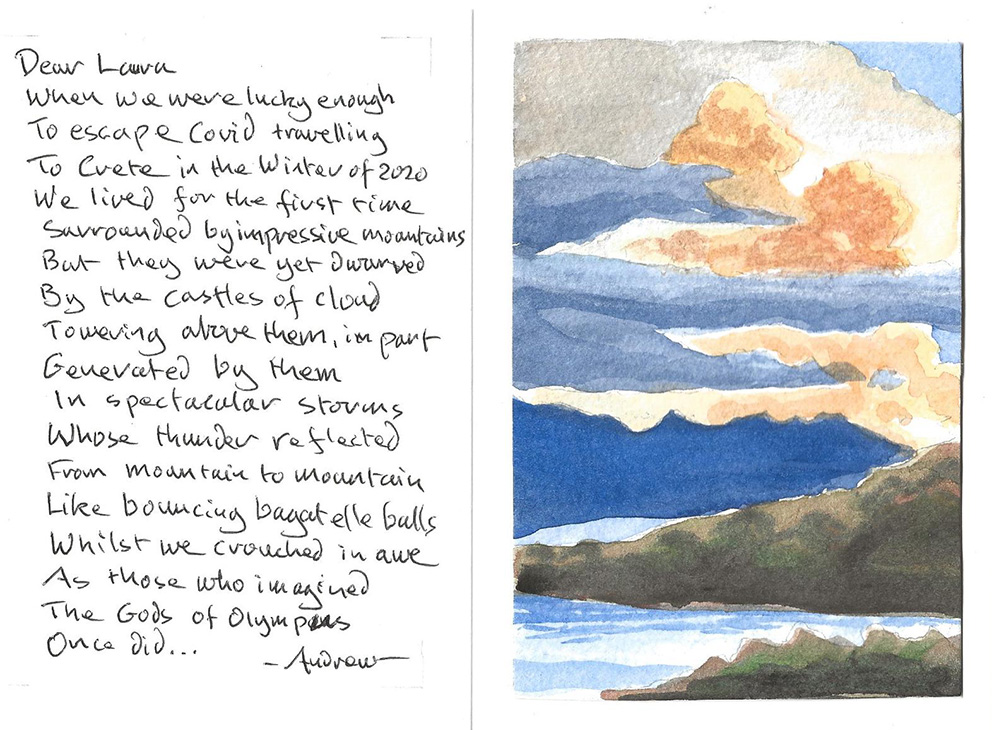 Dear Laura
When we were lucky enough
To escape Covid travelling
To Crete in the Winter of 2020
We lived for the first time
Surrounded by impressive mountains
But they were yet dwarved
By the castles of cloud
Towering above them, in part
Generated by them
In spectacular storms
Whose thunder reflected
From mountain to mountain
Like bouncing bagatelle balls
Whilst we crouched in awe
As those who imagined
The Gods of Olympus
Once did...
- Andrew -